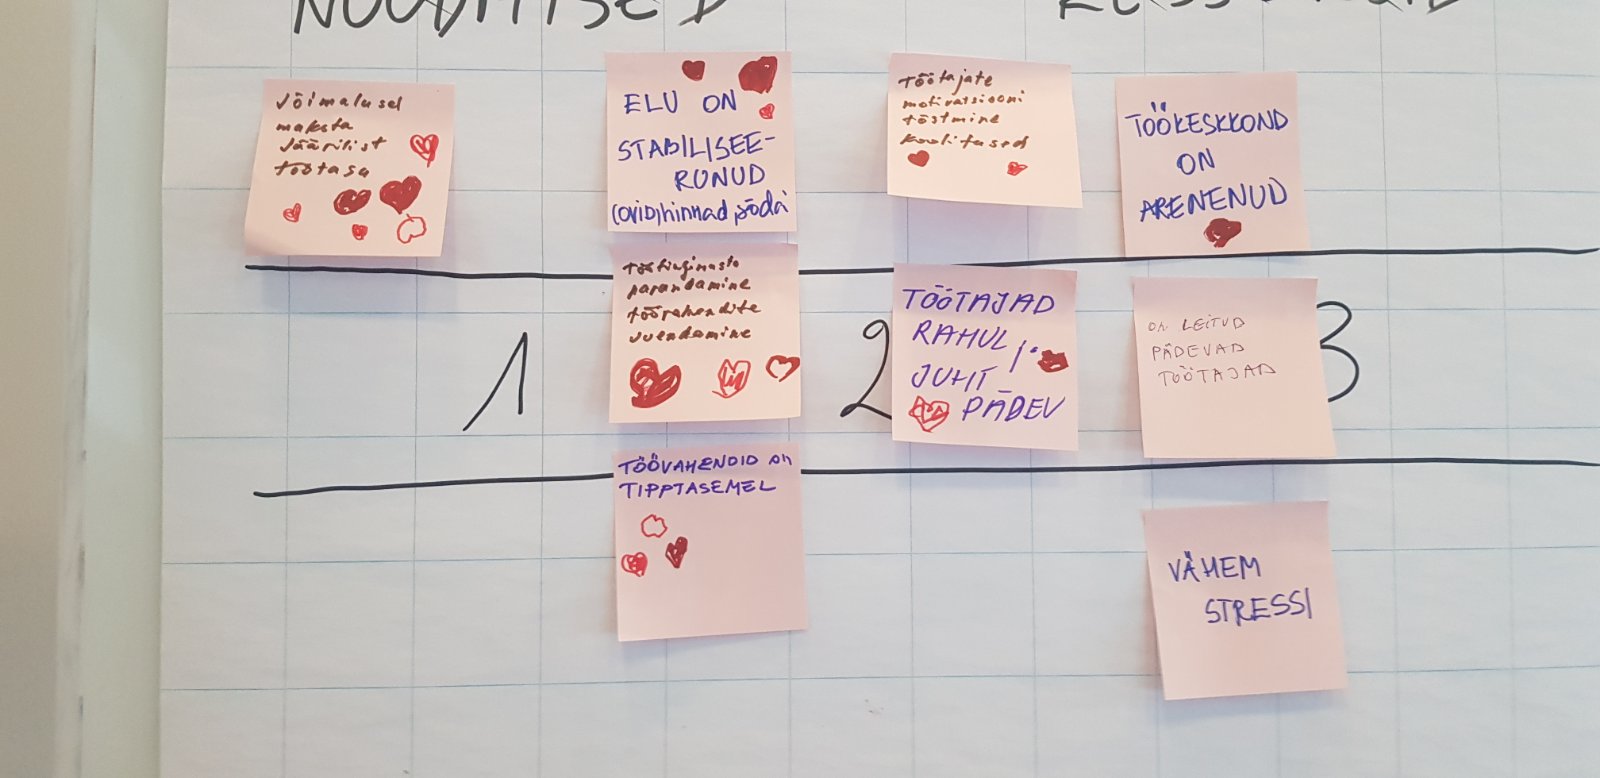 võimalusel
maksta
väärilist
töötasu
ELU ON
STABILISEE-
RUNUD
(OVID, hinnad, sõda
töötajate
motivatsiooni
tõstmine
koolitused
TÖÖKESKKOND
ON
ARENENUD
parandamine
töövahendite
uuendamine
TÖÖTAJAD
RAHUL
JUHT
PÄDEV
ON LEITUD
PÄDEVAD
TÖÖTAJAD
1
2
3
TÖÖVAHENDID ON
TIPPTASEMEL
VÄHEM
STRESSI